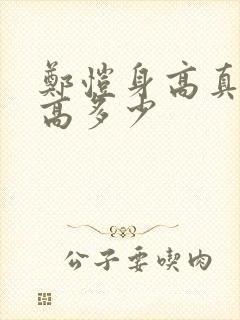 鄭愷身高真
高多少
公子要喫肉